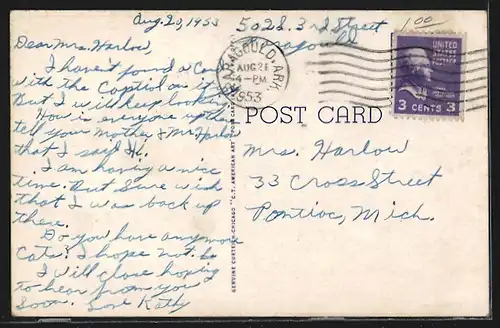 Aug. 23, 1953
502 S. 3rd Street
Paragould
Dear Mrs. Harlow,
I haven't found a Card
with the Capitol on it
But I will keep looking.
How is everyone up there
tell your Mother & Mr Harlow
that I said Hi.
I am having a nice
time. But Sure wish
that I was back up
there.
Do you have anymore
Cats? I hope not.
I will close hoping
to hear from you
Soon. Love Kathy
1.00
PARAGOULD, ARK.
AUG 25
4-PM
1953
UNITED
STATES
POSTAGE
3 CENTS 3
POST CARD
Mrs. Harlow
33 Cross Street
Pontiac, Mich.
GENUINE CURTEICH-CHICAGO "C.T. AMERICAN ART" POST CARD